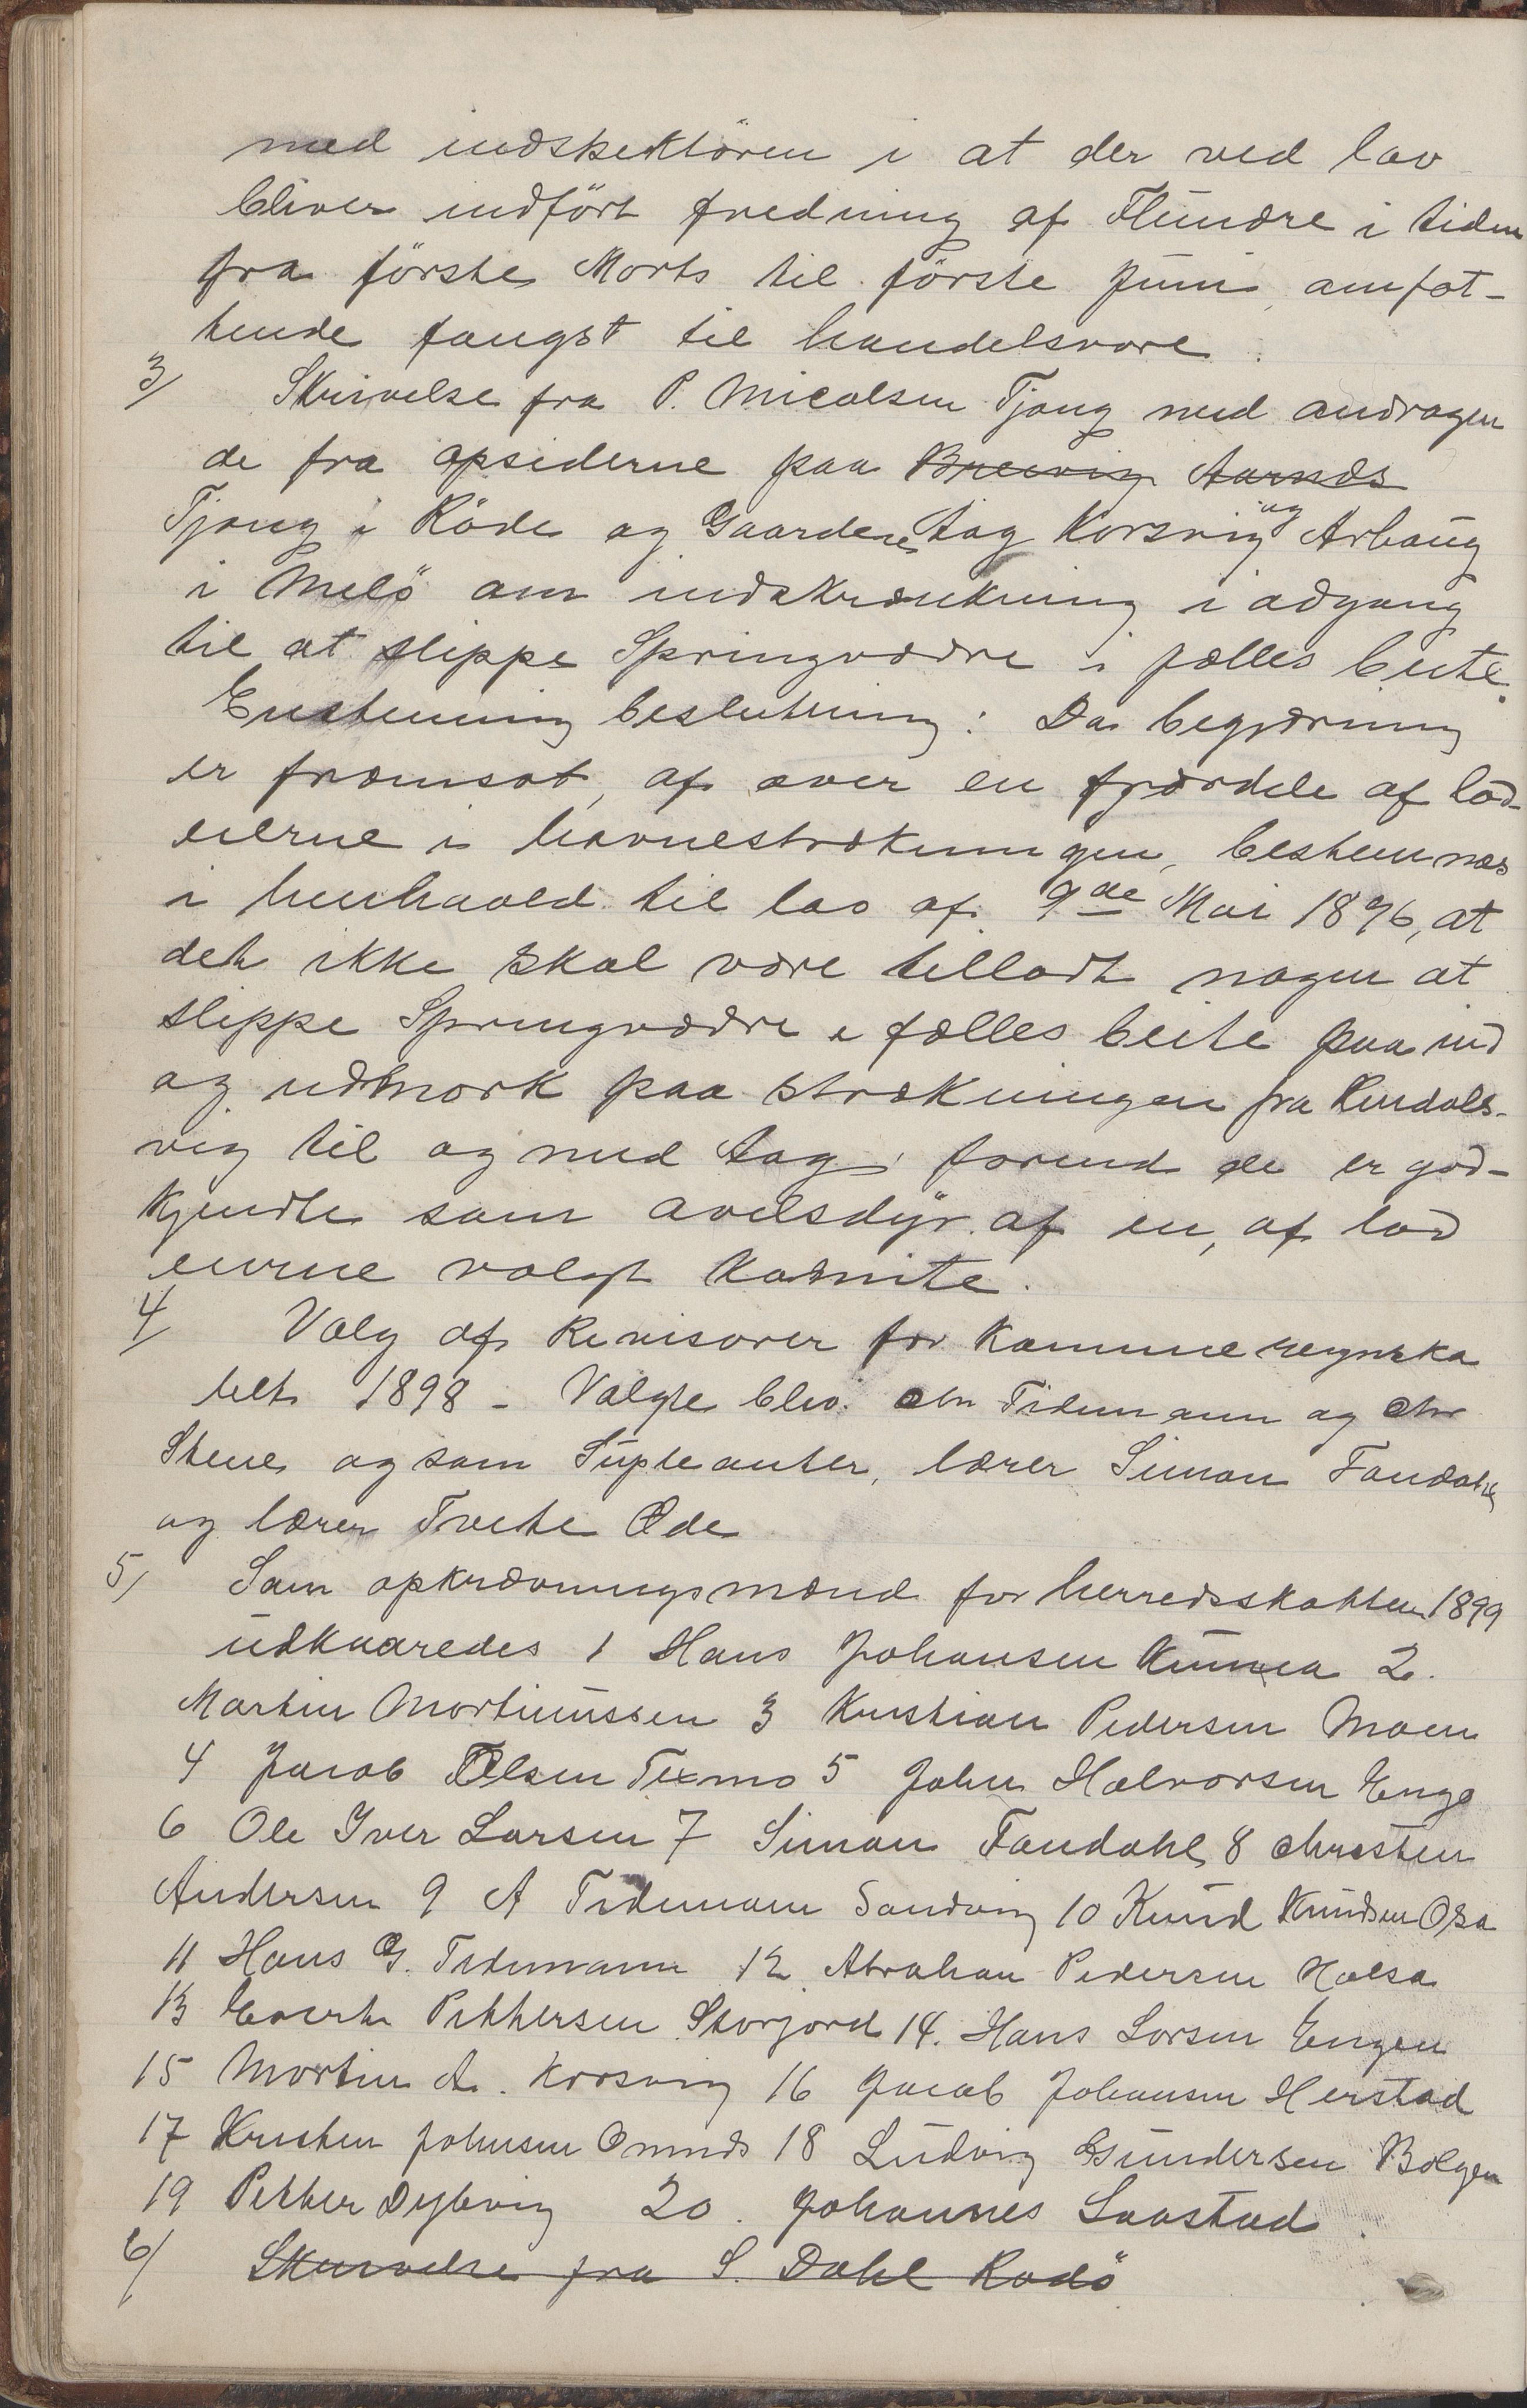 med indspektören i at der ved lov
bliver indfört fredning af Flundre i tiden
fra förste Marts til förste Juni, omfat-
tende fangst til handelsvare.
3/ Skrivelse fra P. Micalsen Tjong med andragen
de fra opsiderne paa Brevig Aarnæs
Tjong i Röde og Gaardene Aag Korsvig og Arhaug
i Melö om indskrænkning i adgang
til at slippe Springvædre i fælles beite.
Enstemmig beslutning: Da begjæring
er fræmsat, af over en fjærdele af lod-
eierne i havnestrækningen, bestemmes
i henhaold til lov af 9de Mai 1896, at
det ikke skal være tilladt nogen at
slippe Springvædre i fælles beite paa ind
og udmark paa strækningen fra Kindals-
vig til og med Aag, forend de er god-
kjendte som avelsdyr af en, af lod
eierne valgt Kommite.
4/ Valg af Revisorer for Kommuneregnska
bet 1898 - Valgte blev Chr Tidemann og Chr
Stene og som Supleanter, lærer Simon Fondahl
og lærer Tvete Øde
5/ Som opkrævningsmænd for herredsskatten 1899
udkaaredes 1 Hans Johansen Kunna 2.
Martin Mortinussen 3 Kristian Pedersen Moen
4 Jacob Olsen Texmo 5 John Halvorsen Enge
6 Ole Iver Larsen 7 Simon Fondahl 8 Christen
Andersen 9 A Tidemann Sandvig 10 Knud Knudsen Osa
11 Hans G. Tidemann 12. Abraham Pedersen Halsa
13 Evert Pettersen Storjord 14. Hans Larsen Engen
15 Mortin A. Korsvig 16 Jacob Johansen Herstad
17 Kristen Johnsen Omnæs 18 Ludvig Gundersen Bolgen
19 Petter Dybvig 20. Johannes Laastad.
6/ Skrivelse fra S. Dahl Rodö